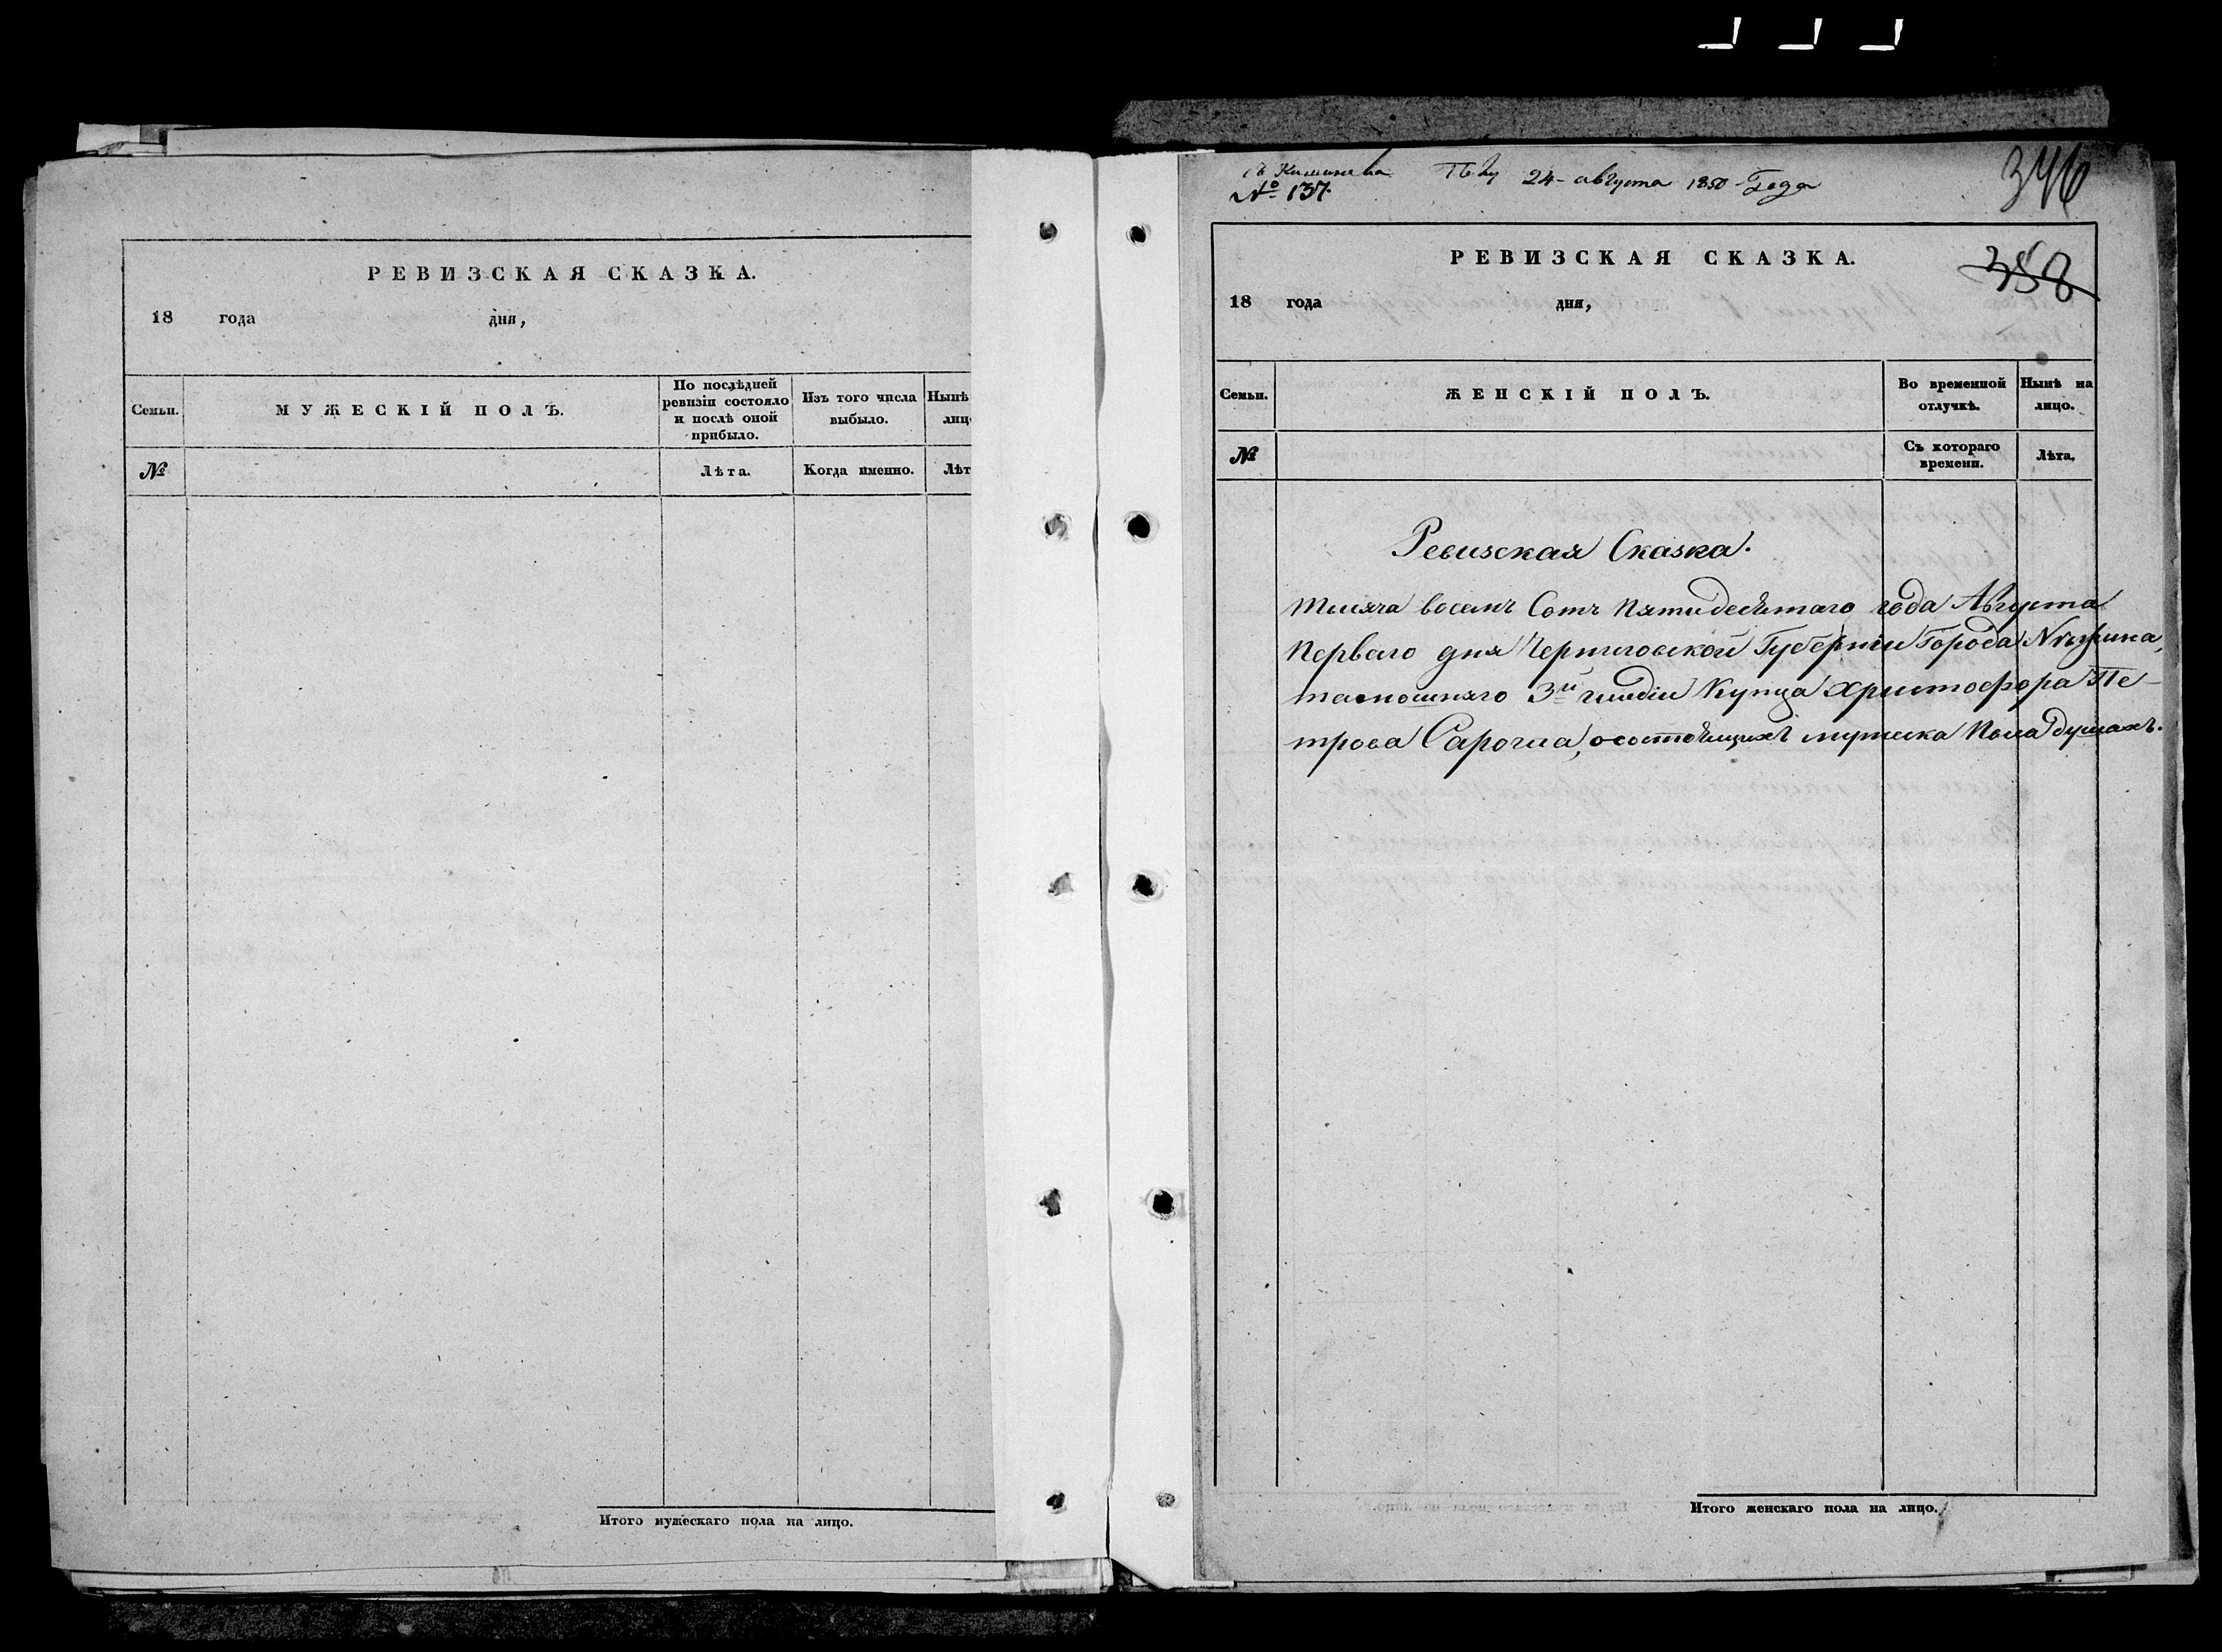 РЕВИЗСКАЯ СКАЗКА.
18 года дня,
Семьи.
МУЖЕСКІЙ ПОЛЪ.
По послѣдней
ревизіи состояло
и послѣ оной
прибыло.
Изъ того числа
выбыло.
Нынѣ
лиц
№
Лѣта.
Когда именно.
Лѣт
Итого мужескаго пола на лицо.
Кишинева 24 августа 1850 Года
№ 137.
346
358
РЕВИЗСКАЯ СКАЗКА.
18 года дня,
Семьи.
ЖЕНСКІЙ ПОЛЪ.
Во временной
отлучкѣ.
Нынѣ на
лицо.
№
Съ котораго
времени.
Лѣта.
Ревизская Сказка.
Тысяча восемъ Сотъ Пятидесѣтаго года Августа
Перваго дня Черниговской Губерніи Города Нѣжина,
тамошняго 3й гилдіи Купца Христофора Пе-
трова Сарочла, о состоѣщихъ мужска Пола душахъ.
Итого женскаго пола на лицо.